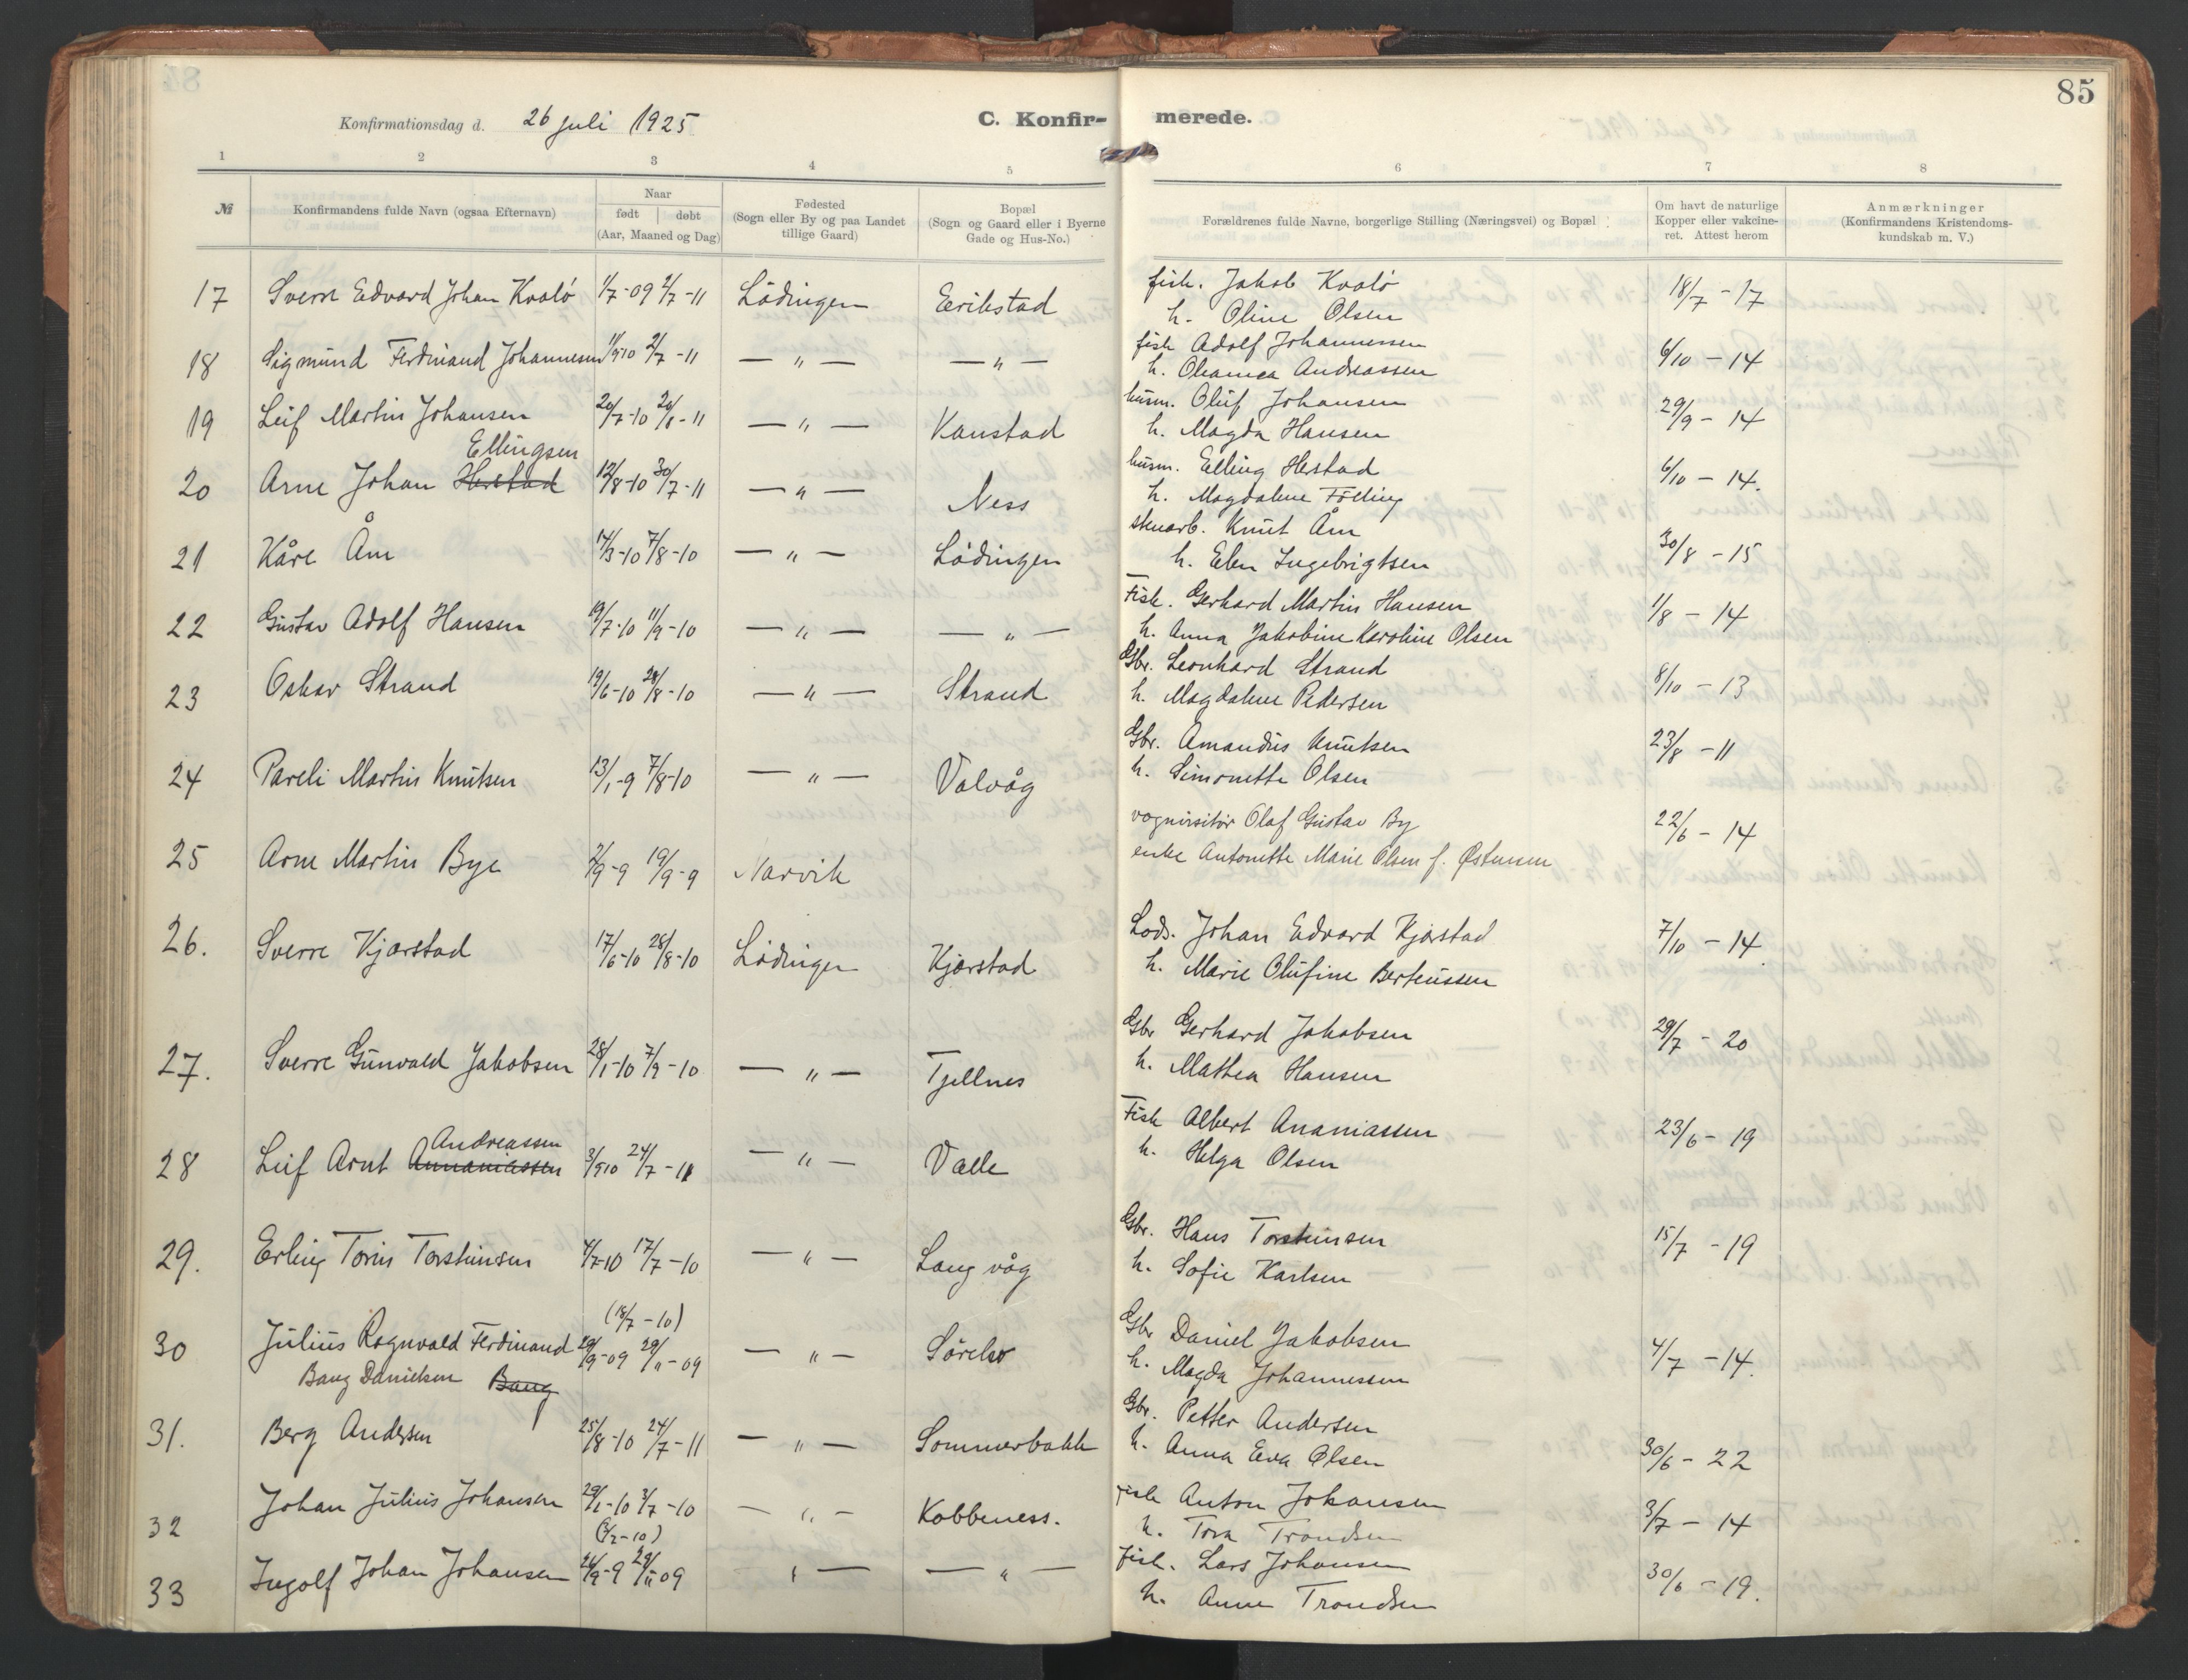 85
Konfirmationsdag d. 26 juli 1925
C. Konfir- merede.
1 2 3 4 5 6 7 8
№
Konfirmandens fulde Navn (ogsaa Efternavn)
Naar
født | døbt
(Aar, Maaned og Dag)
Fødested
(Sogn eller By og paa Landet
tillige Gaard)
Bopæl
(Sogn og Gaard eller i Byerne
Gade og Hus-No.)
Forældrenes fulde Navne, borgerlige Stilling (Næringsvei) og Bopæl
Om havt de naturlige
Kopper eller vakcine-
ret. Attest herom
Anmærkninger
(Konfirmandens Kristendoms-
kundskab m. V.)
17 Sverre Edvard Johan Kvalø 1/7-09 2/7-11 Lødingen Erikstad fisk. Jakob Kvalø 18/7-17
h. Oline Olsen
18 Sigmund Ferdinand Johannesen 2/7-11 — " — — " — fisk Adolf Johannessen 6/10-14
h. Andreassen
19 Leif Martin Johansen 20/7-10 — " — Kanstad husm. Oluf Johansen 29/9-14
h. Magda Hansen
Ellingsen
20 Arne Johan Hestad 12/8-10 30/7-11 — " — Ness husm. Elling Hestad 6/10-14.
h. Magdalene
21 Kåre Åm 14/3-10 7/8-10 — " — Lødingen stenarb. Knut Åm 30/8-15
h. Elen Ingebrigtsen
22 Gustav Adolf Hansen 19/7-10 11/9-10 — " — — " — Fisk. Gerhard Martin Hansen 1/8-14
h. Anna Jakobine Karoline Olsen
23 Oskar Strand 19/6-10 28/8-10 — " — Strand Gbr. Leonhard Strand 8/10-13
h. Magdalene Pedersen
24 Pareli Martin Knutsen 13/1-9 7/8-10 — " — Valvåg Gbr. Amandus Knutsen 23/8-11
h. Simonette Olsen
25 Arne Martin Bye 2/9-9 19/9-9 Narvik vognvisitør Olaf Gustav By 22/6-14
enke Antonette Marie Olsen f. Østensen
26. Sverre Kjærstad 17/6-10 28/8-10 Lødingen Kjærstad Lods. Johan Edvard Kjærstad 7/10-14.
h. Marie Olufine Berteussen
27. Sverre Gunvald Jakobsen 28/1-10 7/9-10 — " — Tjellnes Gbr Gerhard Jakobsen 29/7-20
h. Mathea Hansen
Andreassen
28 Leif Arnt Annaniassen 24/7-11 — " — Valle Fisk Albert Ananiassen 23/6-19
h. Helga Olsen
29. Erling Torin Torsteinsen 4/7-10 17/7-10 — " — Langvåg Gbr. Hans Torsteinsen 15/7-19
h. Sofie Karlsen
(18/7-10)
30 Julius Ragnvald Ferdinand 29/9-09 29/11-09 — " — Gbr Daniel Jakobsen 4/7-14.
Bang Danielsen Bang h. Magda Johannessen
31. Berg Andersen 25/8-10 24/7-11 — " — Sommerbakk Gbr. Petter Andersen 30/6-22
h. Anna Eva Olsen
32 Johan Julius Johansen 29/1-10 3/7-10 — " — Kobbeness. fisk Anton Johansen 3/7-14
h. Tora Trondsen
33 Ingolf Johan Johansen 29/11 09 — " — — " — fisk. Lars Johansen 30/6-19.
h. Anne Trondsen